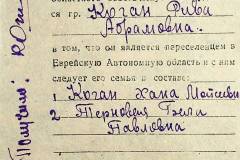 ся гр. Коган Рива
Абрамовна.
в том, что он является переселенцем в
Еврейскую Автономную область и с ним
следует его семья в составе:
1 Коган Хана Мойсеевна
2 Терновая Бела
Павловна
Получил: